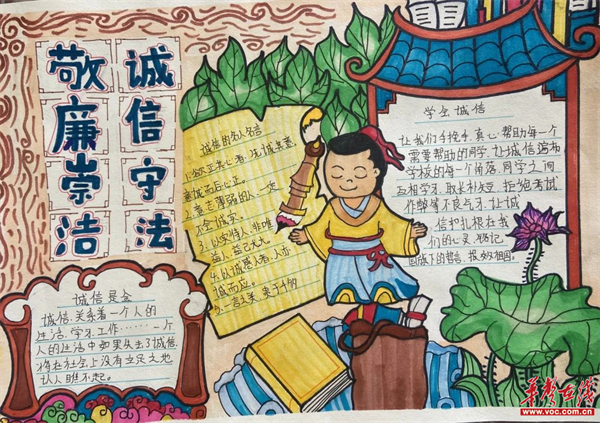 诚信守法
敬廉崇洁
诚信的名人名言
1.欲正其心者,先诚其意,
意诚而后心正。
2.意志薄弱的人,一定
不会诚实。
3.以实待人,非唯
益人,益己尤大。
4.以诚感人者,人亦
诚而应。
5.一言之美,贵于千
学生诚信
让我们手挽手,真心帮助每一个
需要帮助的同学,让诚信遍布
学校的每一个角落,同学之间
互相学习,取长补短,拒绝考试
作弊等不良风气,让诚
信扎根在我
们的心灵,牢记
国旗下的誓言,
诚信是金
诚信,关系着一个人的
生活、学习、工作……一个
人的生活中如果失去了诚信,
将在社会上没有立足之地
让人瞧不起。
华声在线
www.voc.com.cn